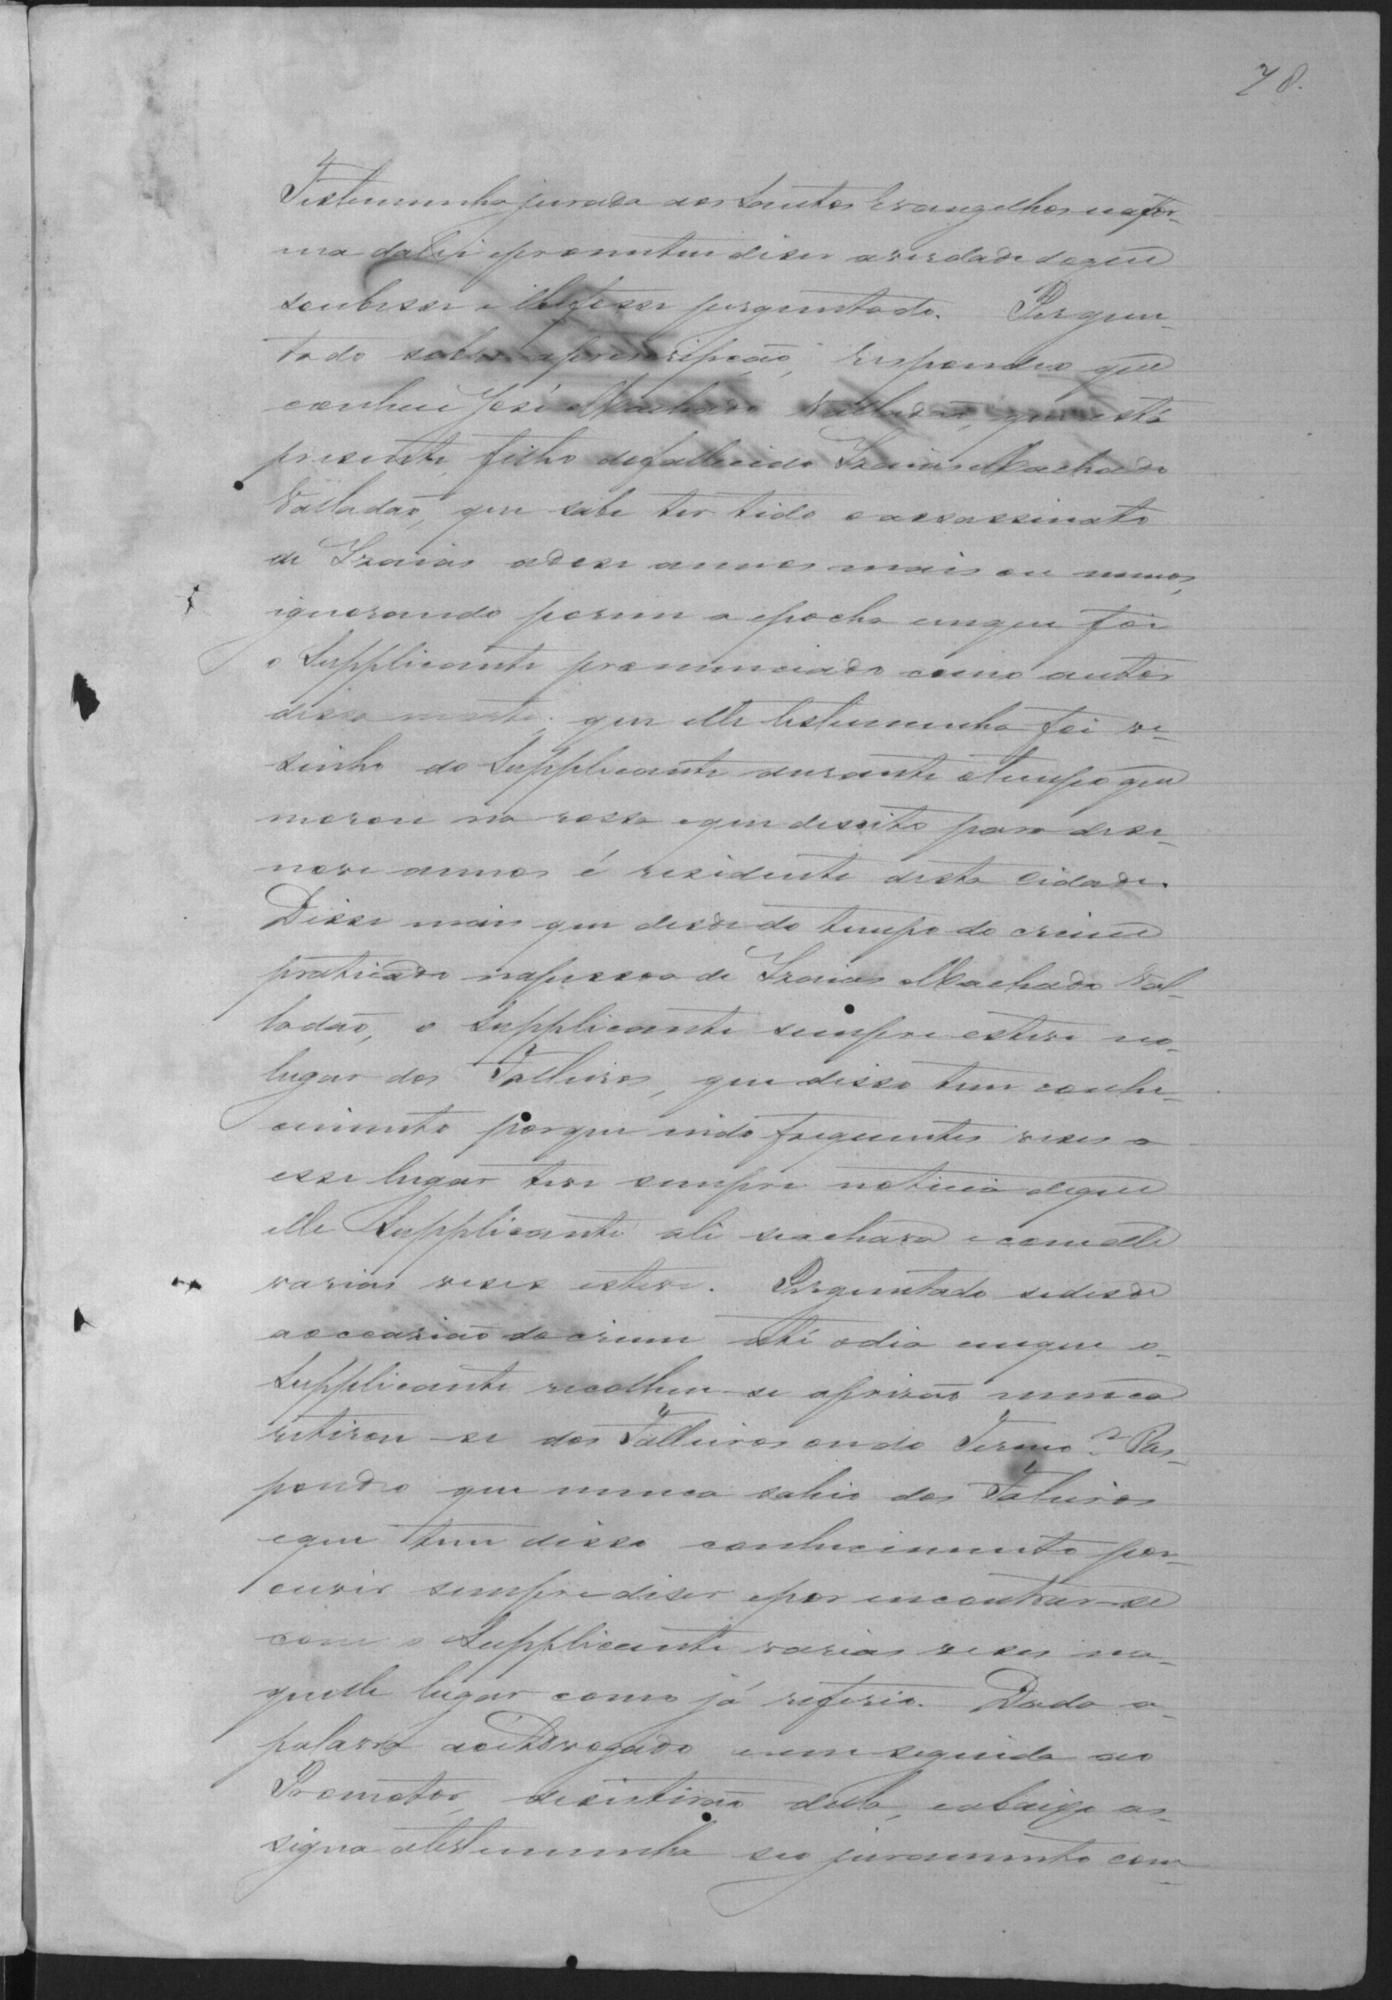 78.
Testemunha jurada aos Santos Evangelhos na for-
ma da lei e prometteu diser a verdade do que
soubesse e lhe fosse perguntado. Pergun-
tado sobre a prescripção, respondeo que
conhece José Machado Valladão, que está
presente, filho do fallecido Izaias Machado
Valladão, que sabe ter tido o assassinato
de Izaias a dose annos mais ou menos,
ignorando porem a epocha em que foi
o Supplicante pronunciado como autor
dessa morte; que elle testemunha foi vi-
sinho do Supplicante durante o tempo que
morou na rossa e que desoito para dese-
nove annos é residente desta cidade.
Disse mais que desde do tempo do crime
praticado na pessoa de Izaias Machado Val-
ladão, o Supplicante sempre esteve no
lugar dos Talheiros, que disso tem conhe-
cimento porque indo frequentes veses a
esse lugar teve sempre noticia de que
elle Supplicante ali se achava e com elle
varias veses esteve. Perguntado se desde
a occasião do crime até o dia em que o
Supplicante recolheu-se a prizão nunca
retirou-se dos Talheiros ou do Termo? Res-
pondeo que nunca sahio dos Talheiros
e que tem disso conhecimento por
ouvir sempre diser e por encontrar-se
com o Supplicante varias veses na-
quelle lugar como já referio. Dada a
palavra ao Advogado e em seguida ao
Promotor, desistirão della, e abaixo as-
signa a testemunha seo juramento com